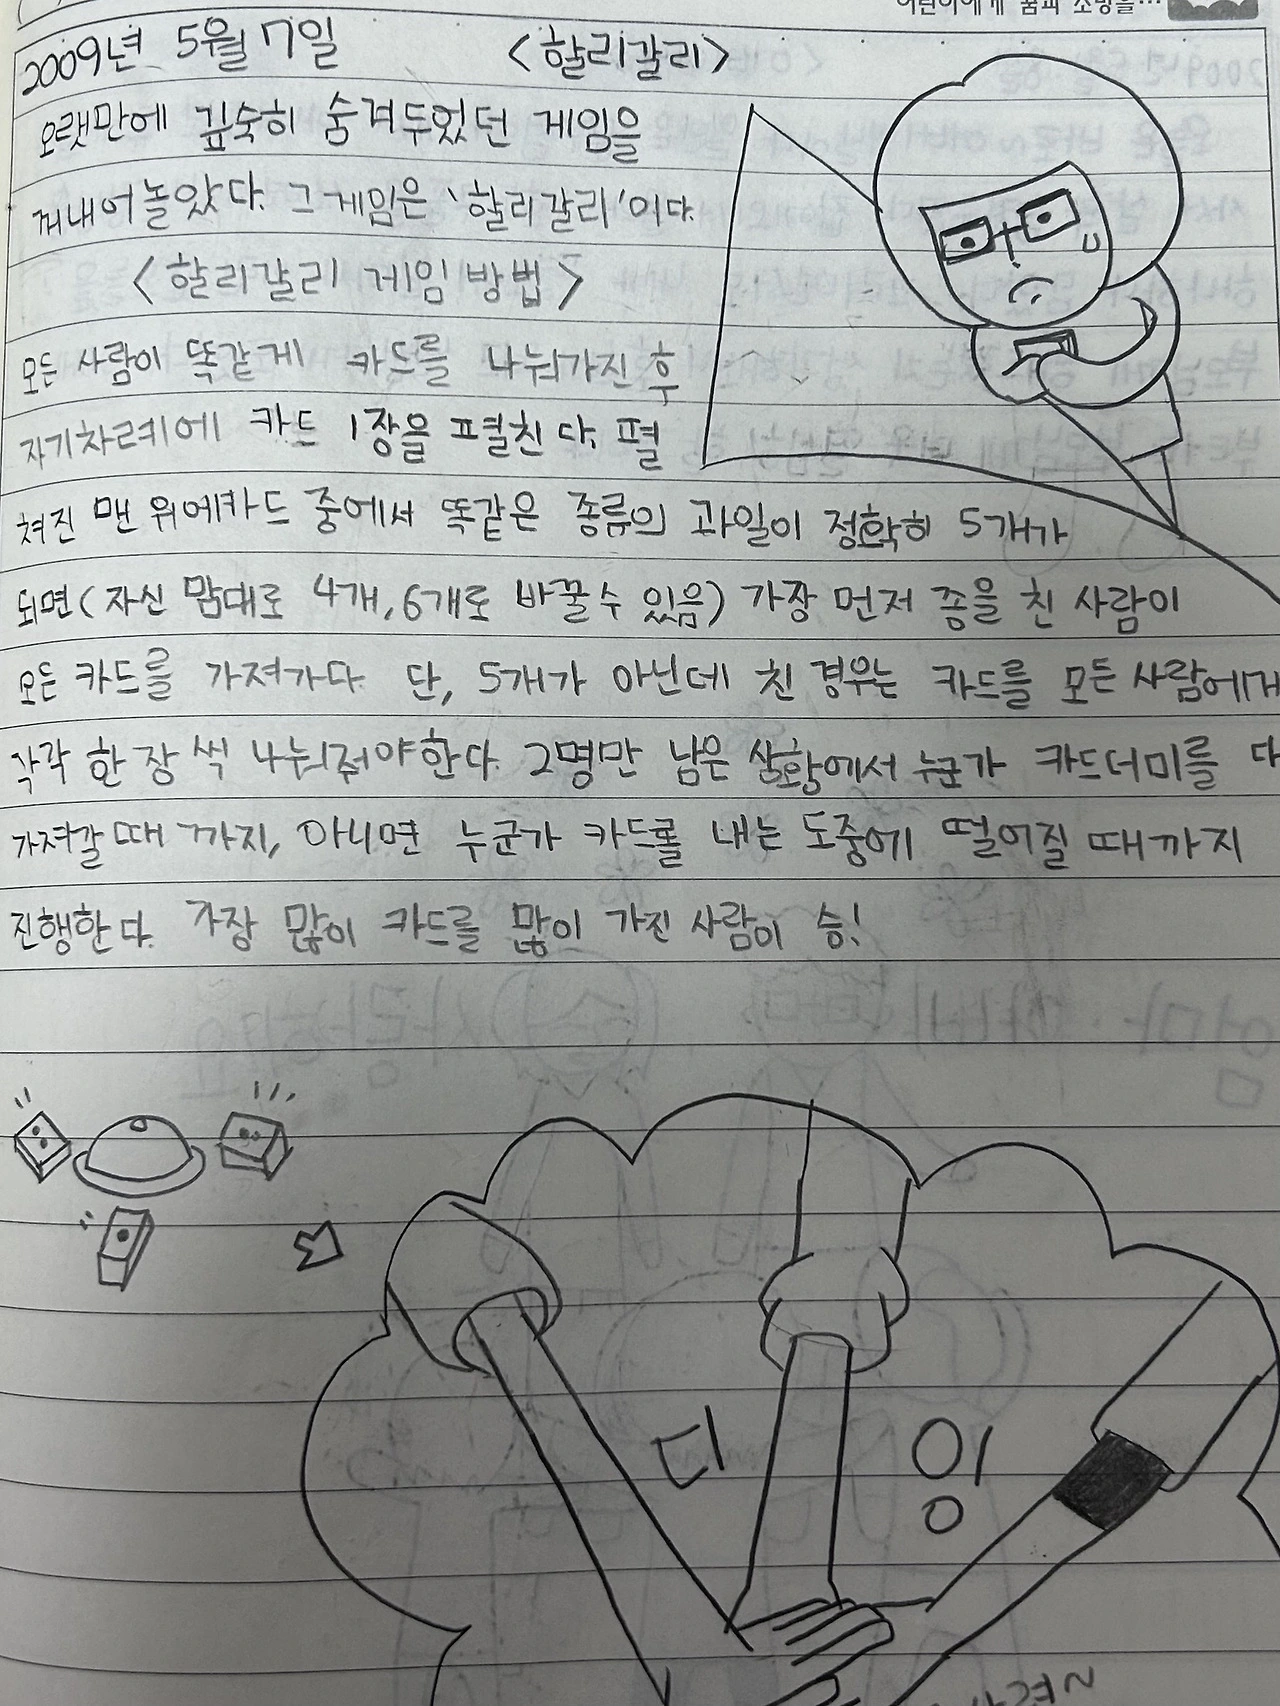 어린이에게 꿈과 소망을...
2009년 5월 7일 <할리갈리>
오랫만에 깊숙히 숨겨두었던 게임을
꺼내어 놀았다. 그 게임은 '할리갈리'이다.
<할리갈리 게임 방법>
모든 사람이 똑같게 카드를 나눠가진 후
자기차례에 카드 1장을 펼친다. 펼
쳐진 맨 위에카드 중에서 똑같은 종류의 과일이 정확히 5개가
되면(자신 맘대로 4개, 6개로 바꿀수 있음) 가장 먼저 종을 친 사람이
모든 카드를 가져가다. 단, 5개가 아닌데 친 경우는 카드를 모든 사람에게
각각 한 장 씩 나눠줘야한다. 2명만 남은 상황에서 누군가 카드더미를 다
가져갈 때 까지, 아니면 누군가 카드를 내는 도중에 떨어질 때까지
진행한다. 가장 많이 카드를 많이 가진 사람이 승!
디 잉